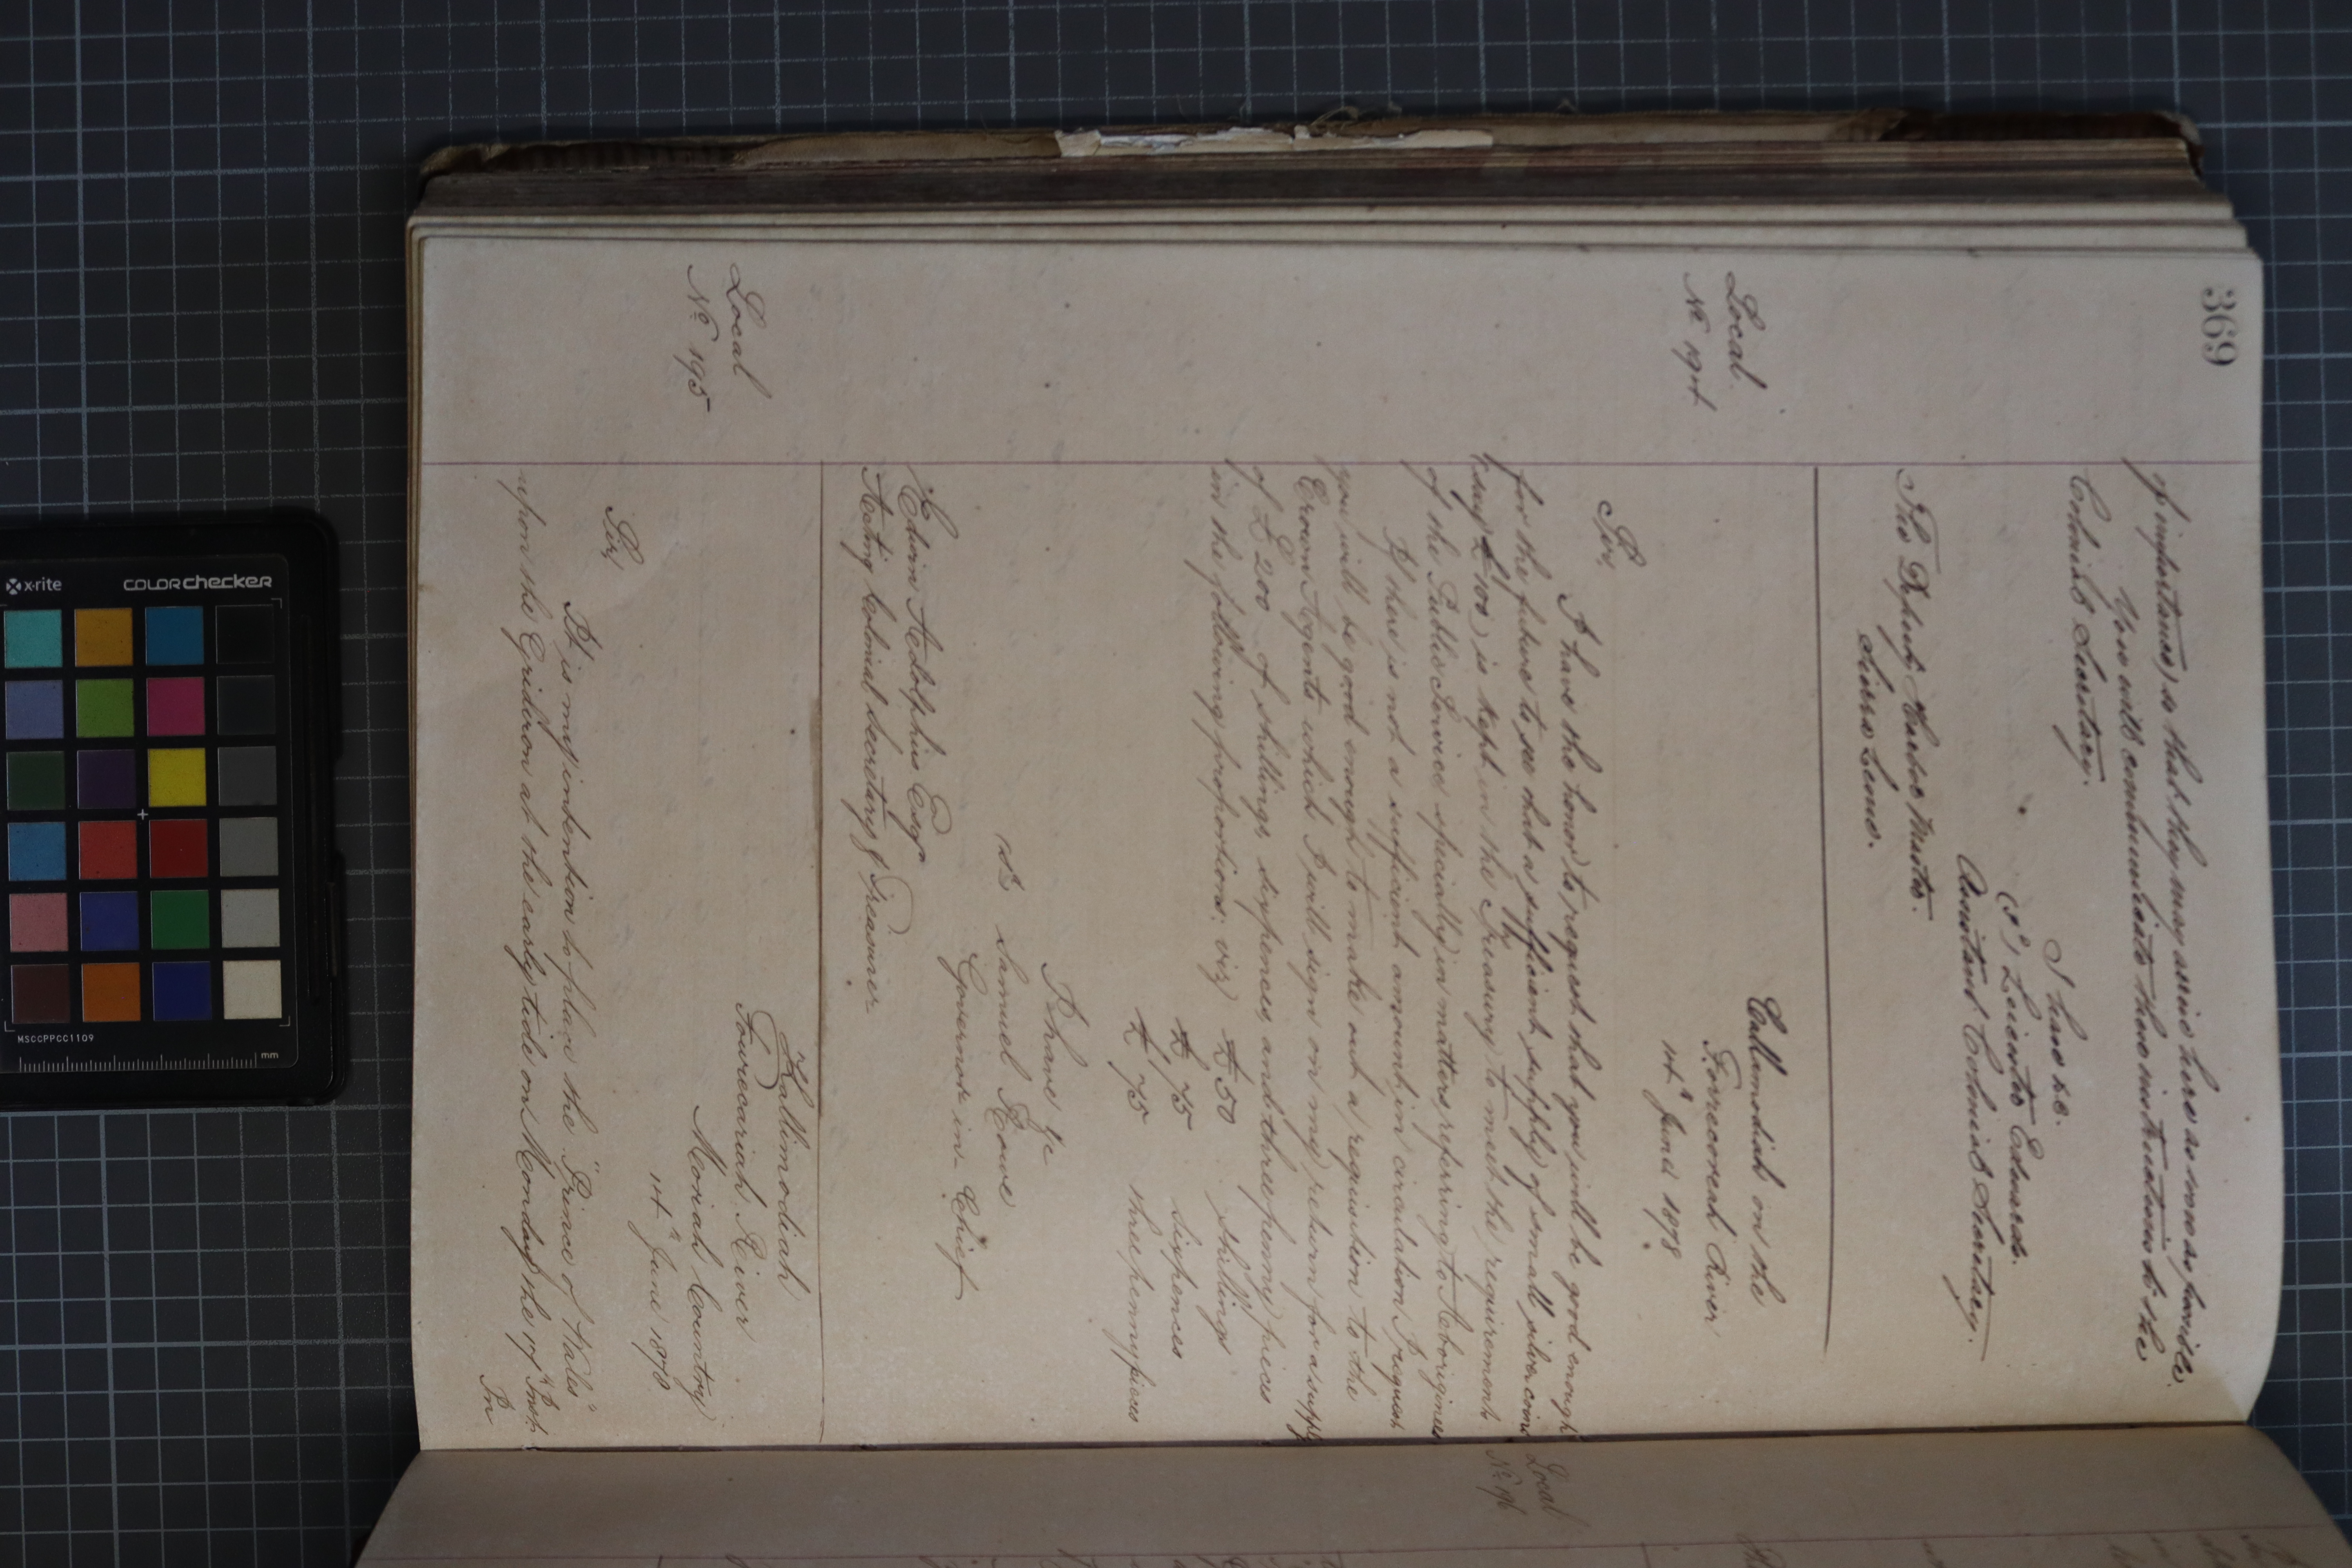 369
of importance) so that they may arrive here as soon as possible.
You will communicate these instructions to the
Colonial Secretary.
I have &c.
Assistant Colonial Secretary.
The Deputy Harbor Master.
Sierra Leone.
Local
No. 194
Callimodiah on the
Forrecoreah River
14th June 1878
Sir,
I have the honor to request that you will be good enough
for the future to see that a sufficient supply of small silver coins
(say £100) is kept in the Treasury to meet the requirements
of the Public Service specially in matters referring to Aborigines
If there is not a sufficient amount in circulation I request
you will be good enough to make out a requisition to the
Crown Agents which I will sign on my return for a supply
of £200 of shillings, sixpences, and threepenny pieces
in the following proportions: viz) £50 shillings
£75 sixpences
£75 threepenny pieces
I have &c
Samuel Rowe
Governor in-Chief
Edwin Adolphus Esqr
Acting Colonial Secretary & Treasurer
Local
No. 195
Kallimodiah
Fourecariah River
Moriah Country
14th June 1878.
Sir,
It is my intention to place the "Prince of Wales"
upon the Gridiron at the early tide on Monday the 17th Inst.
In
Local
No. 196
x-rite
colorchecker
MSCCPPCC1109
mm